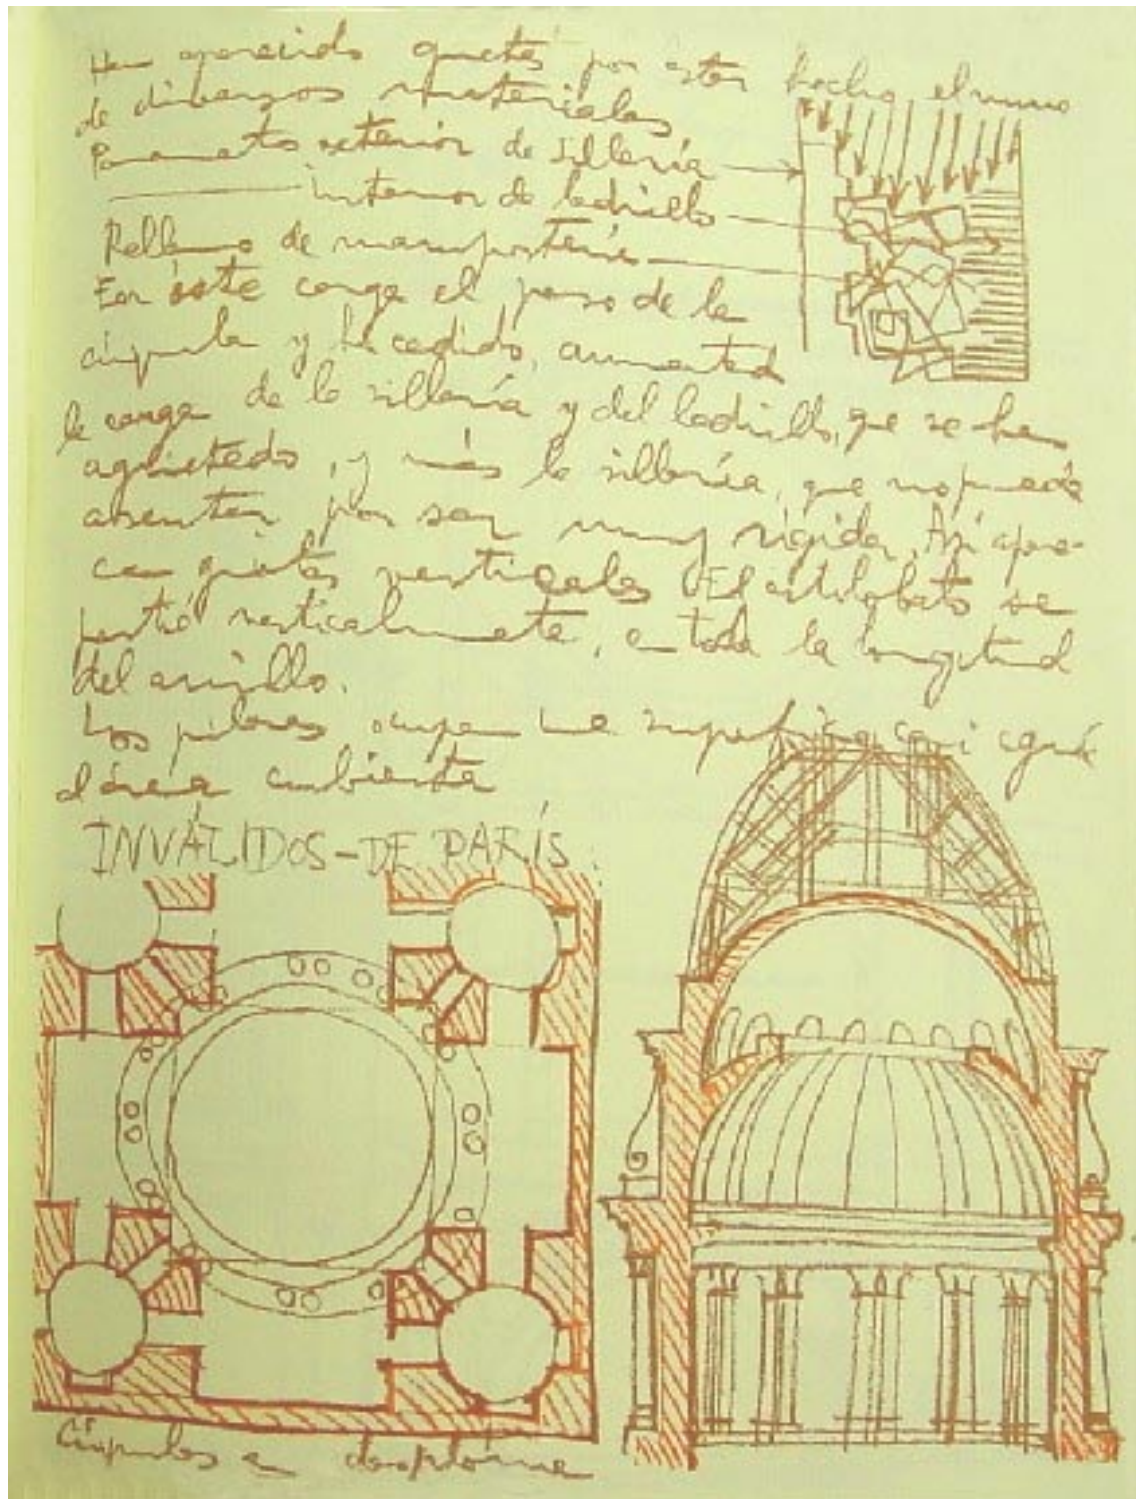 Han aparecido grietas por estar hecho el muro
de diversos materiales
Paramento exterior de sillería
interior de ladrillo
Relleno de mampostería
En éste carga el peso de la
cúpula y ha cedido, aumentad
la carga de la sillería y del ladrillo, que se han
agrietado, y más la sillería, que no puede
asentar por ser muy rígida. Así apare-
cen grietas verticales El estilobato se
partió verticalmente, en toda la longitud
del anillo.
Los pilares ocupan una superficie casi igual
al área cubierta
INVÁLIDOS-DE PARÍS.
Cúpulas a desplome